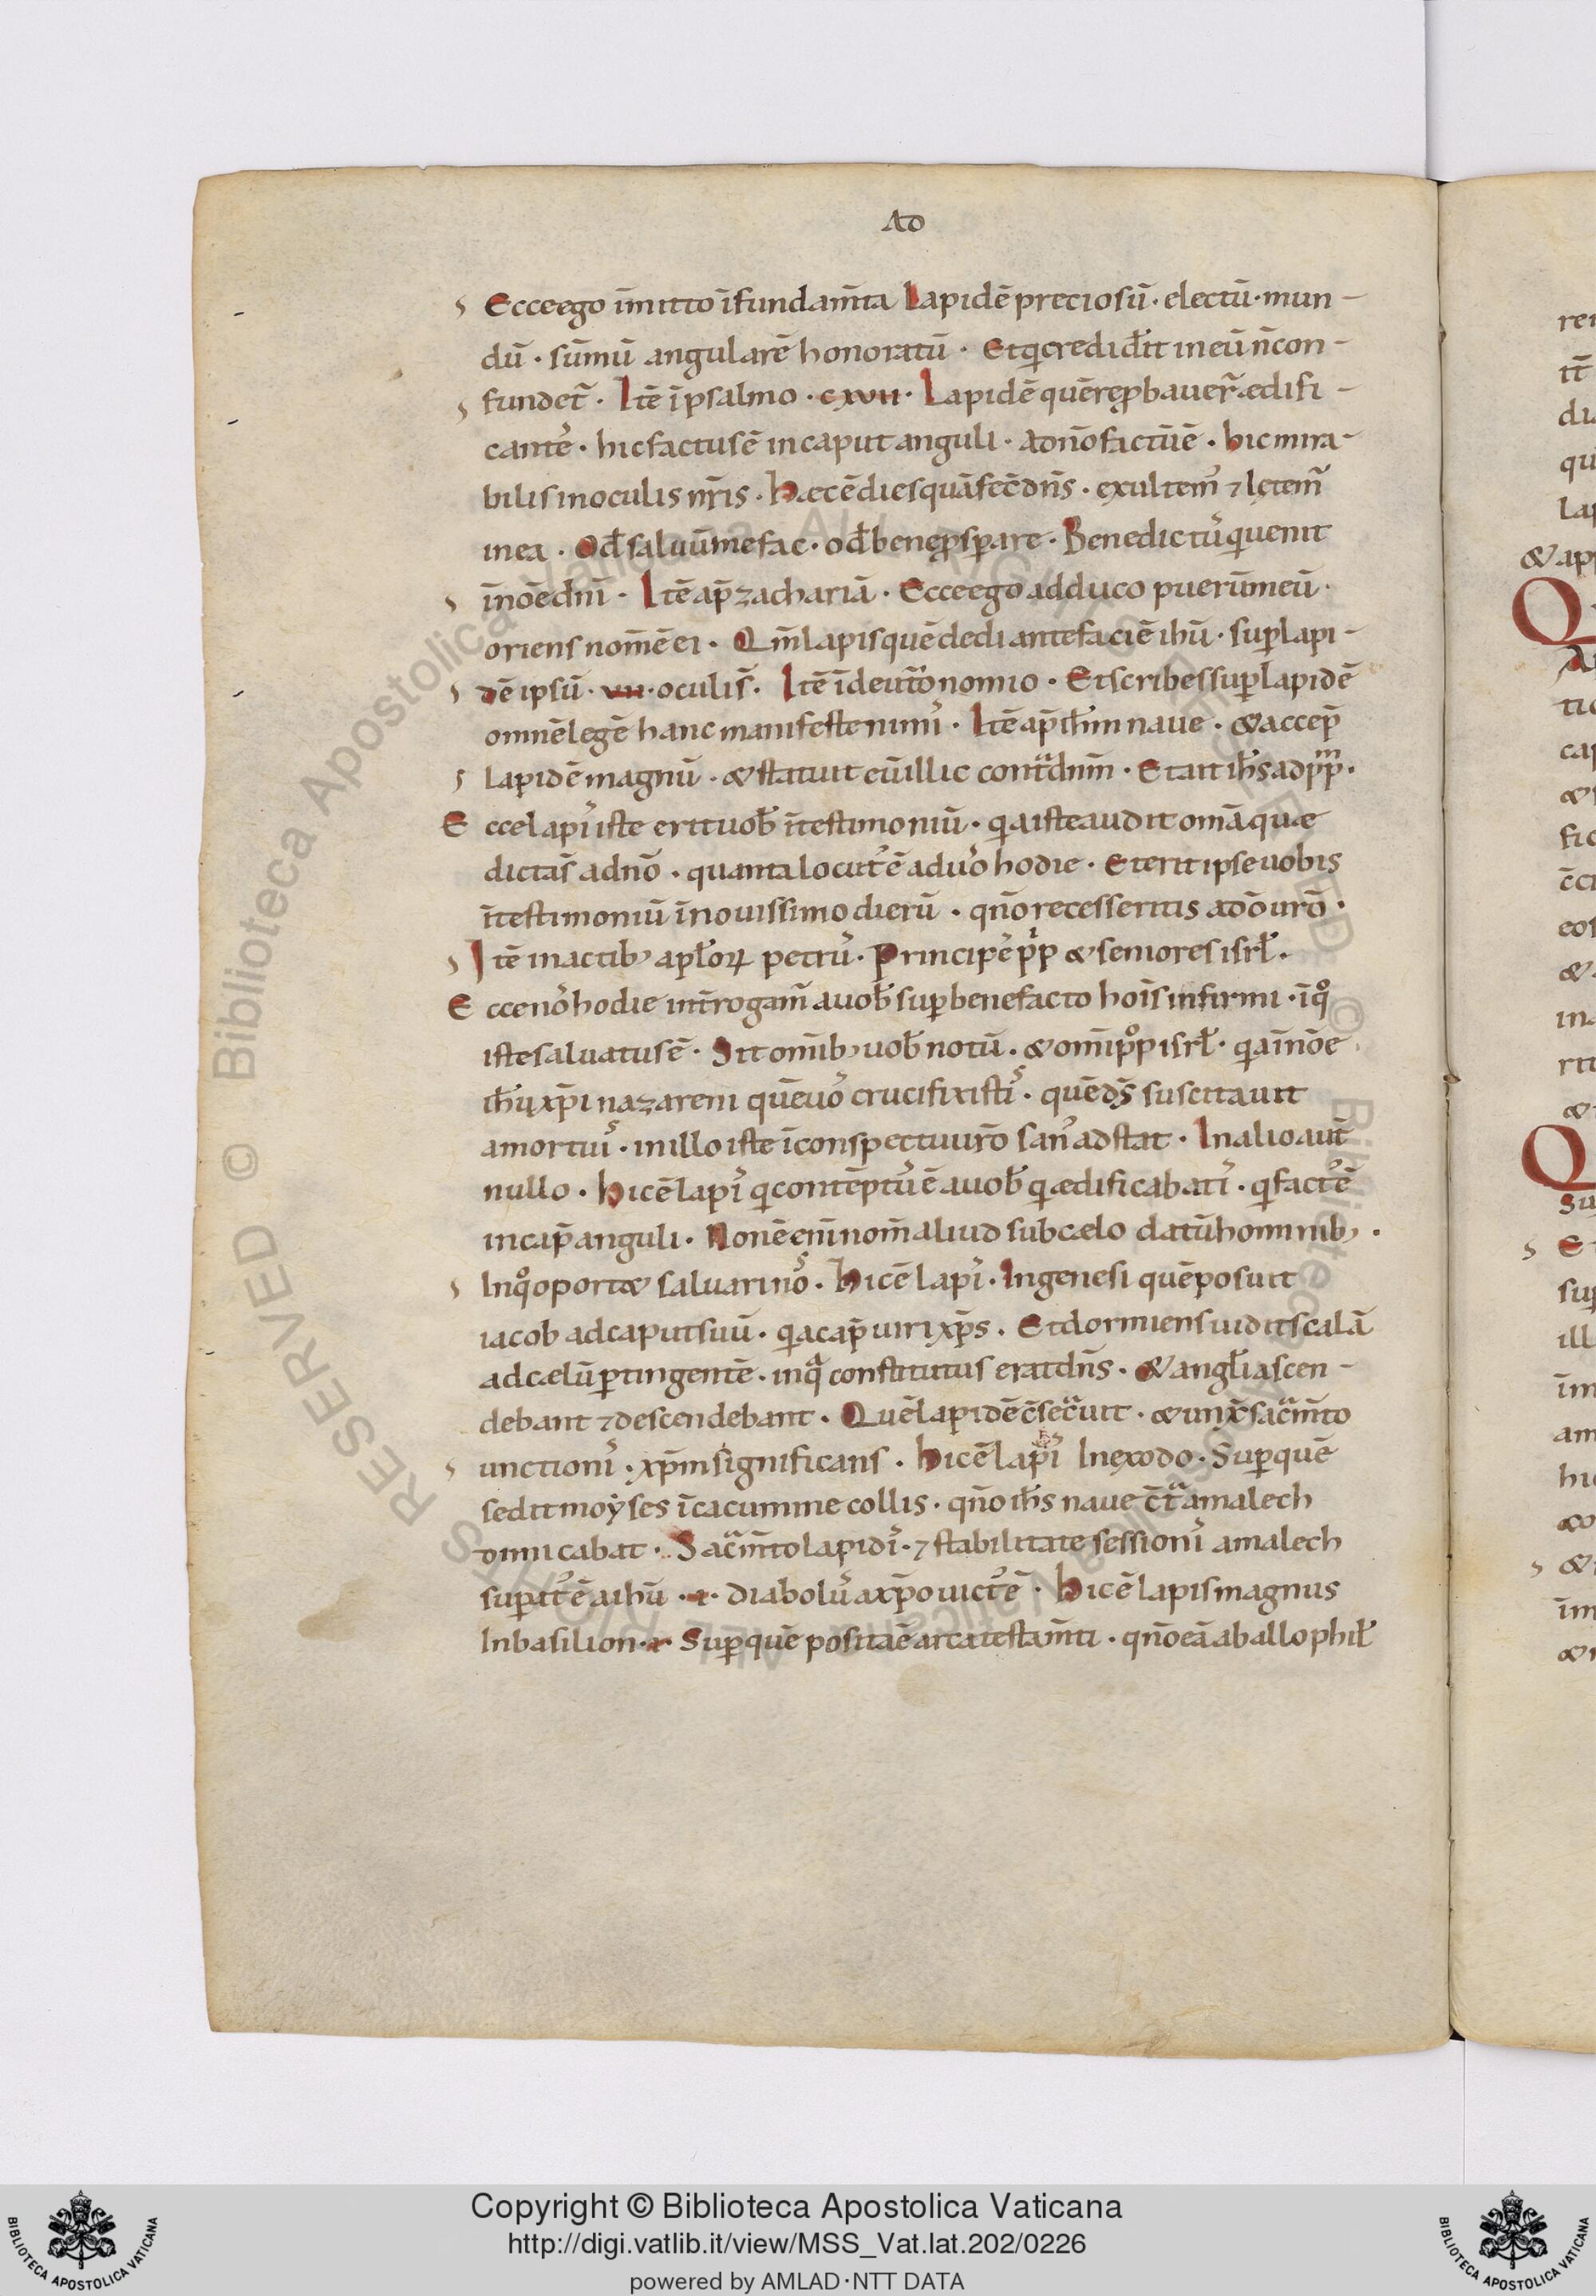 AD
Ecce ego īmitto ī fundam̄ta Lapidē preciosū · electū · mun-
dū · sūmū angularē honoratū · Et qͥ credid̄it in eū n̄ con-
fundet᷑ · Itē ī psalmo · cxvii · Lapidē quē rep̱bauer᷑ ædifi-
cantes᷒ · hic factus ē in caput anguli · a dn̄o factū ē · hic mira-
bilis in oculis nr̄is · Hæc ē dies quā fec̄ dn̄s · exultem᷒ ⁊ lętem᷑
in ea · O dn̄e saluū me fac · o dn̄e bene p̱sp̱are · Benedictus᷒ qͥ uenit
ī nōe dn̄i · Itē ap̄ zachariā · Ecce ego adduco puerū meū ·
oriens nom̄ ē ei · Qm̄ lapis quē dedi ante faciē ihū · sup̱ lapi-
dē ipsū · vii · oculi s̄ · Itē ī deut̄onomio · Et scribes sup̱ lapidē
omnē legē hanc manifeste nimis᷒ · Itē ap̄ ih̄m naue · & accep̄
lapidē magnū · & statuit eū illic contͣ dn̄m · Et ait ih̄s ad pp̄m ·
Ecce lapis᷒ iste erit uob̄ ī testimoniū · qͥa iste audit om̄a quæ
dicta s̄ a dn̄o · quanta locut᷒ ē ad uos᷒ hodie · Et erit ipse uobis
ī testimoniū ī nouissimo dierū · qn̄o recesseritis a dō uro̅ ·
Itē in actib; apl̄oꝝ petrus᷒ · Principes᷒ pp̄ͥ & seniores isrl̄ ·
Ecce nos᷒ hodie int̄rogam᷑ a uob̄ sup̱ benefacto hoīs infirmi · ī qͦ
iste saluatus ē · Sit om̄ib; uob̄ notū · & om̄i ppͦ isrl̄ · qͥa ī nōe
ih̄u xp̄i nazareni quē uos᷒ crucifixistis᷒ · quē ds̄ suscitauit
a mortuis᷒ · in illo iste ī conspectu uro̅ san᷒ adstat · In alio aut̄
nullo · Hic ē lapis᷒ qͥ contēptus᷒ ē a uob̄ qͥ ædificabatis᷒ · qͥ fact᷒ ē
in cap̄ anguli · Non ē eni̅ nom̄ aliud sub cælo datū hominib; ·
In qͦ oport& saluari nos᷒ · Hic ē lapis᷒ · In genesi quē posuit
iacob ad caput suū · qͥa cap̄ uiri xp̄s · Et dormiens uidit scalā
ad cælū p̱tingentē · in qͣ constitutus erat dn̄s · & angl̄i ascen-
debant ⁊ descendebant · Quē lapidē c̄secͣuit · & unx̄ sacͣm̄to
unctionis᷒ · xp̄m significans · Hic ē lapis᷒ In exodo · Sup̱ quē
sedit moẏses ī cacumine collis · qn̄o ih̄s naue c̄tͣ amalech
dimicabat · Sacͣm̄to lapidis᷒ · ⁊ stabilitate sessionis᷒ amalech
sup̱at᷒ ē a ihū · i · diabolus᷒ a xp̄o uict᷒ ē · Hic ē lapis magnus
In basilion · i · Sup̱ quē posita ē arca testam̄ti · qn̄o eā ab allophil̄